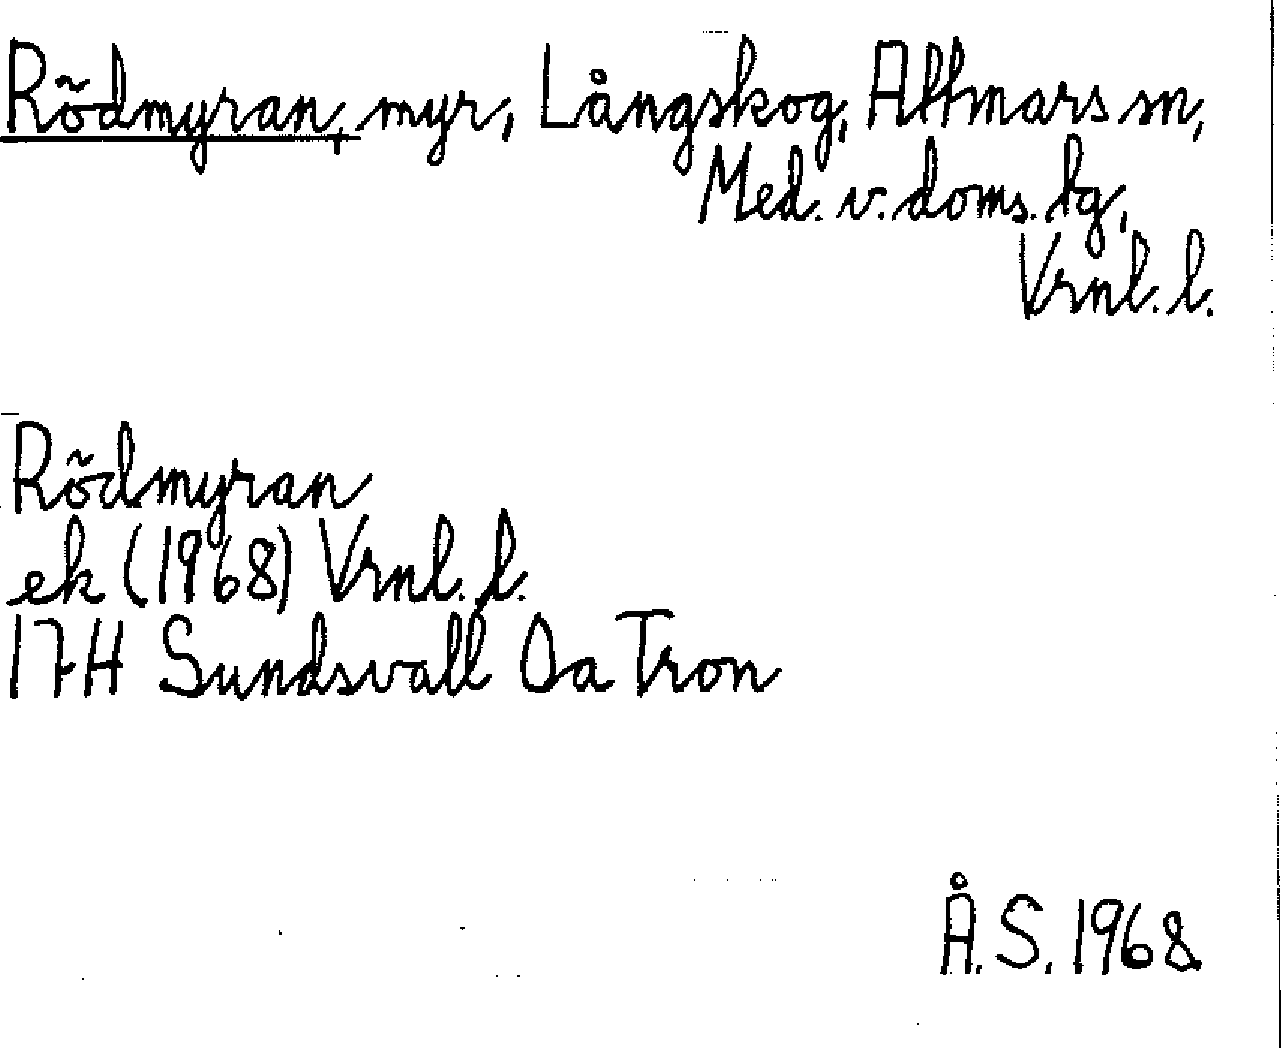 Rödmyran, myr, Långskog, Attmars sn,
Med. v. doms. lg,
Vrnl. l.
Rödmyran
ek (1968) Vrnl. l.
17H Sundsvall Oa Tron
Å.S. 1968